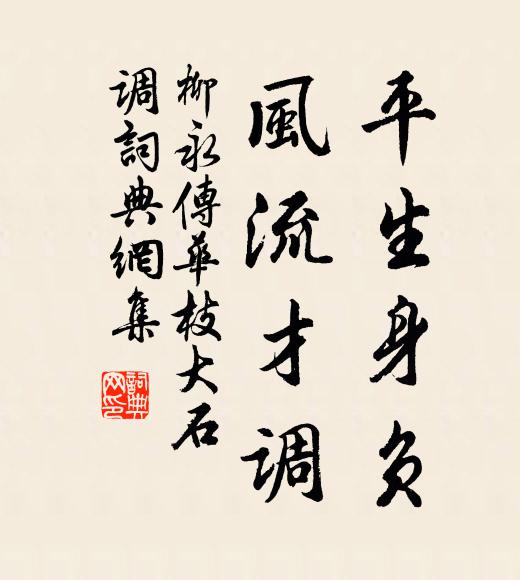 平生身负
風流才调
柳永傳華枝大石
调詞典網集
詞典
网印